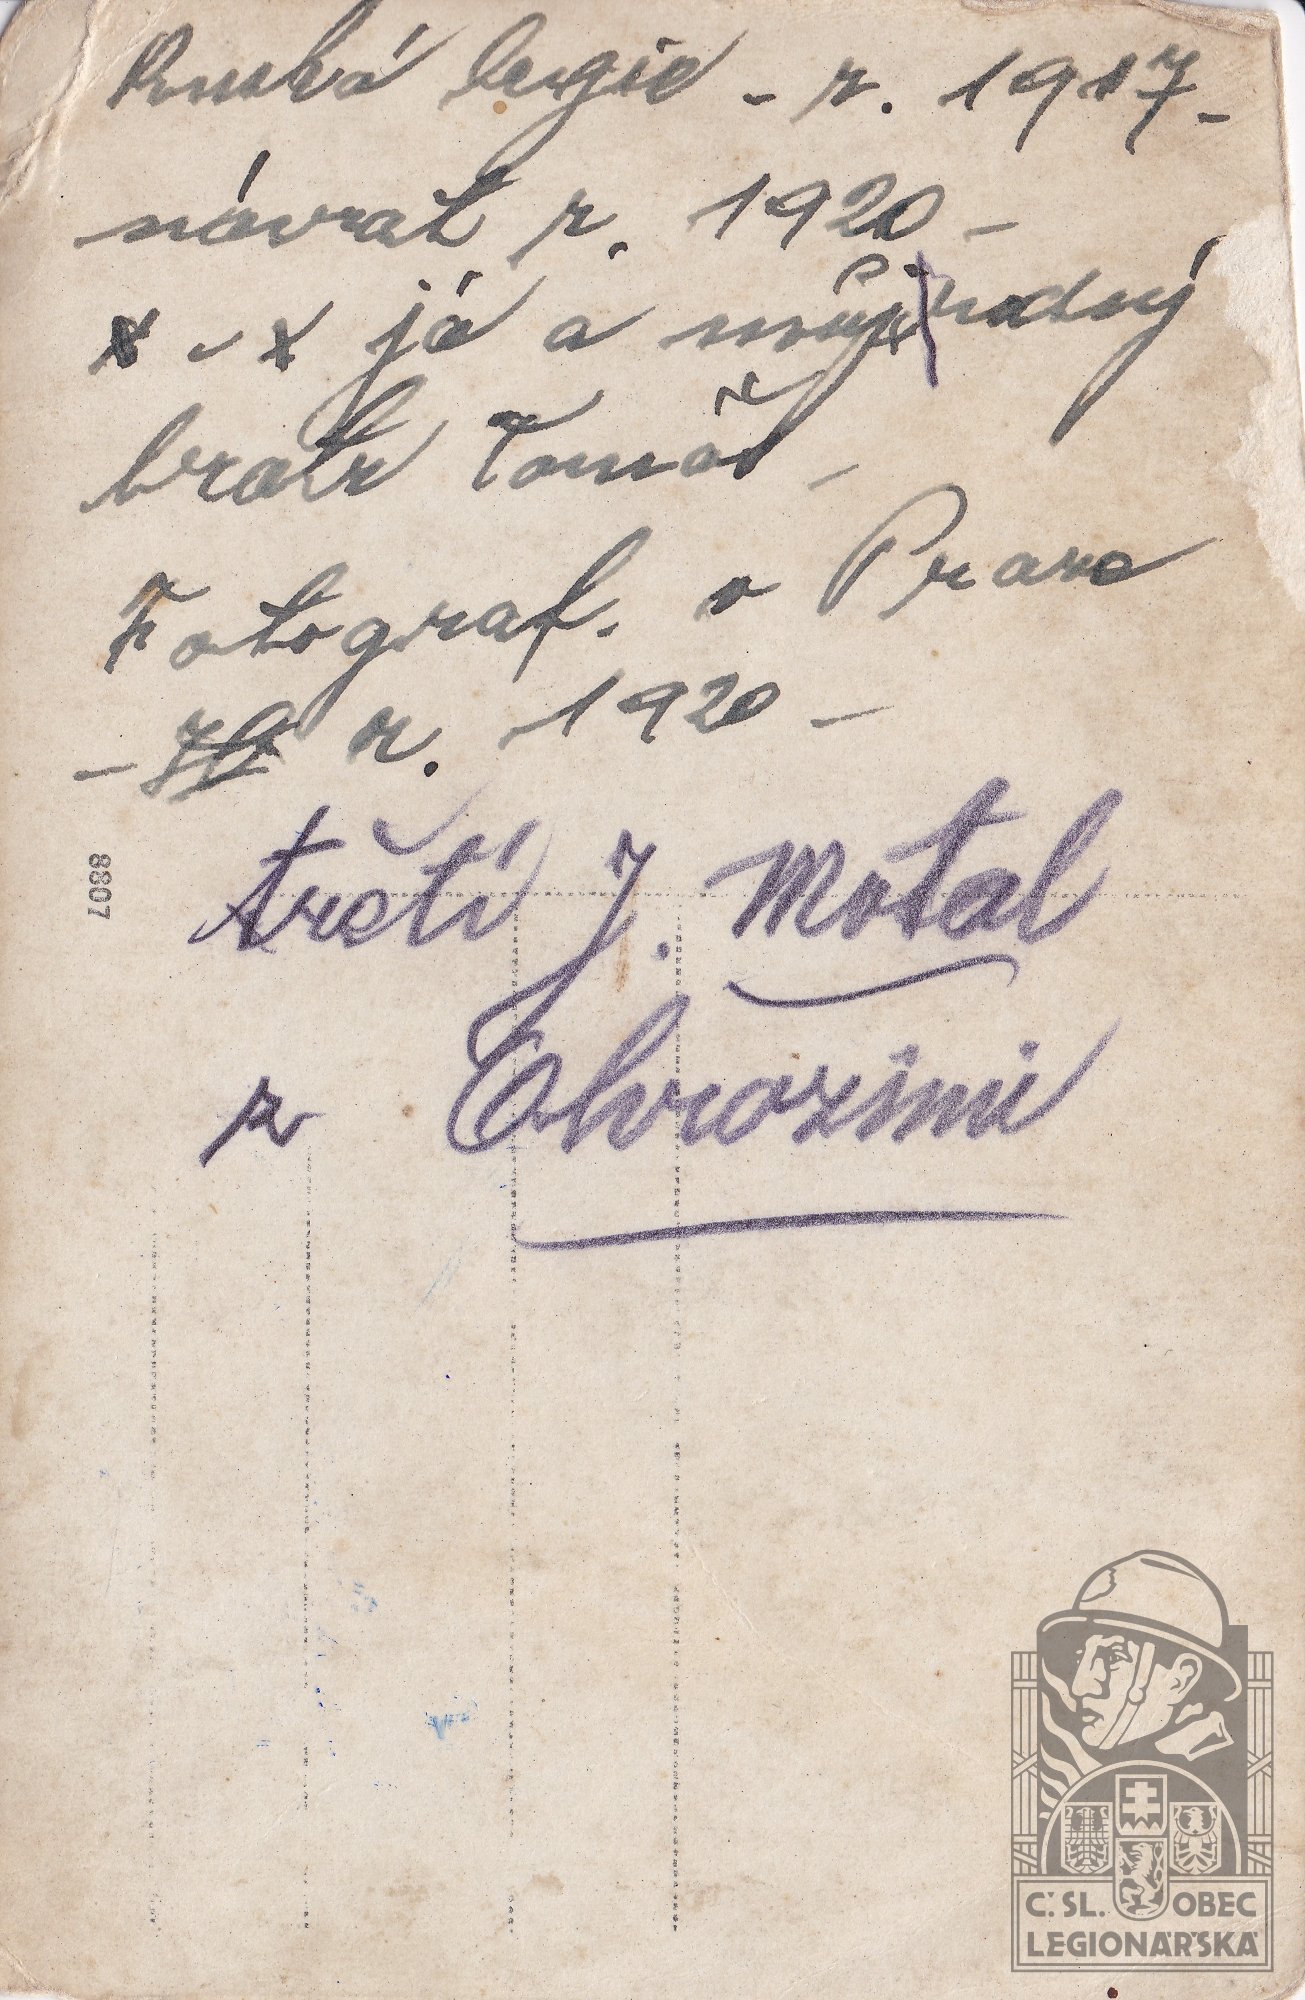 Ruská legie - r. 1917 -
návrat r. 1920 -
x - x já a můj rodný
bratr Tomáš -
Fotograf. v Praze
- r. 1920 -
třetí J. Motal
z Ohrozimi
8807
Č. SL. OBEC
LEGIONÁŘSKÁ